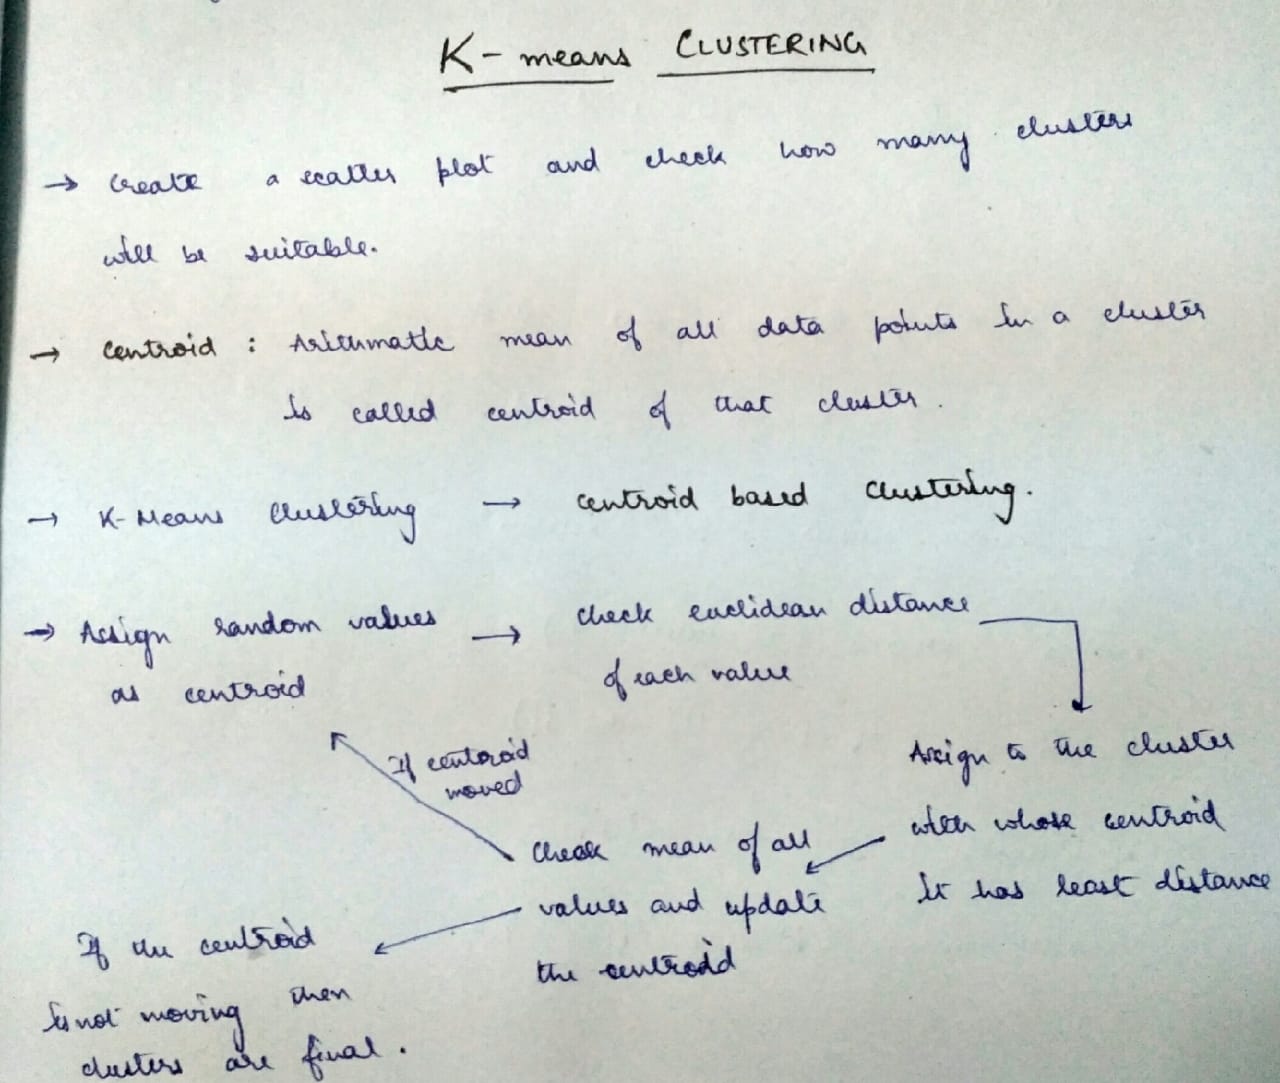 K- means CLUSTERING
→ Create a scatter plot and check how many clusters
will be suitable.
→ Centroid : Arithmatic mean of all data points in a cluster
is called centroid of that cluster.
→ K-Means Clustering → Centroid based Clustering.
→ Assign random values → check euclidean distance
as centroid of each value
If centroid
moved
Assign to the cluster
with whose centroid
it has least distance
Check mean of all
values and update
the centroid
If the centroid
is not moving then
clusters are final.